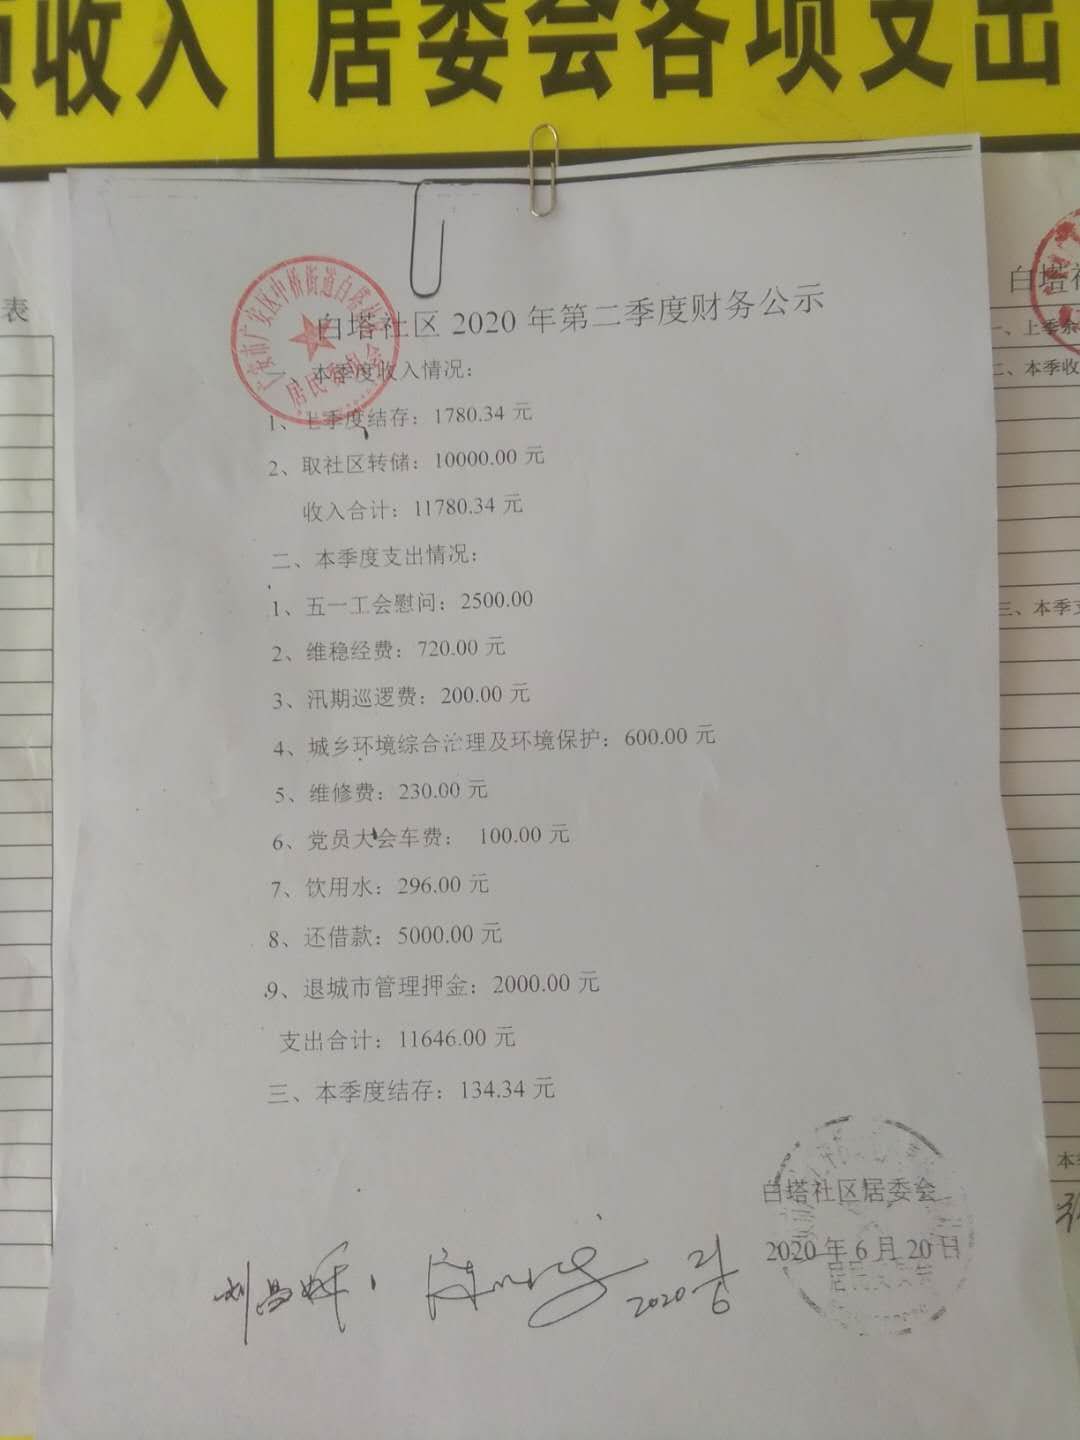 收入
居委会各项支出
表
广安市广安区中桥街道白塔
居民委员会
白塔社区 2020 年第二季度财务公示
一、本季度收入情况：
1、上季度结存：1780.34 元
2、取社区转储：10000.00 元
收入合计：11780.34 元
二、本季度支出情况：
1、五一工会慰问：2500.00
2、维稳经费：720.00 元
3、汛期巡逻费：200.00 元
4、城乡环境综合治理及环境保护：600.00 元
5、维修费：230.00 元
6、党员大会车费： 100.00 元
7、饮用水：296.00 元
8、还借款：5000.00 元
9、退城市管理押金：2000.00 元
支出合计：11646.00 元
三、本季度结存：134.34 元
白塔社区居委会
2020 年 6 月 20 日
2020
白塔社
一、上季余
二、本季收
三、本季支
本